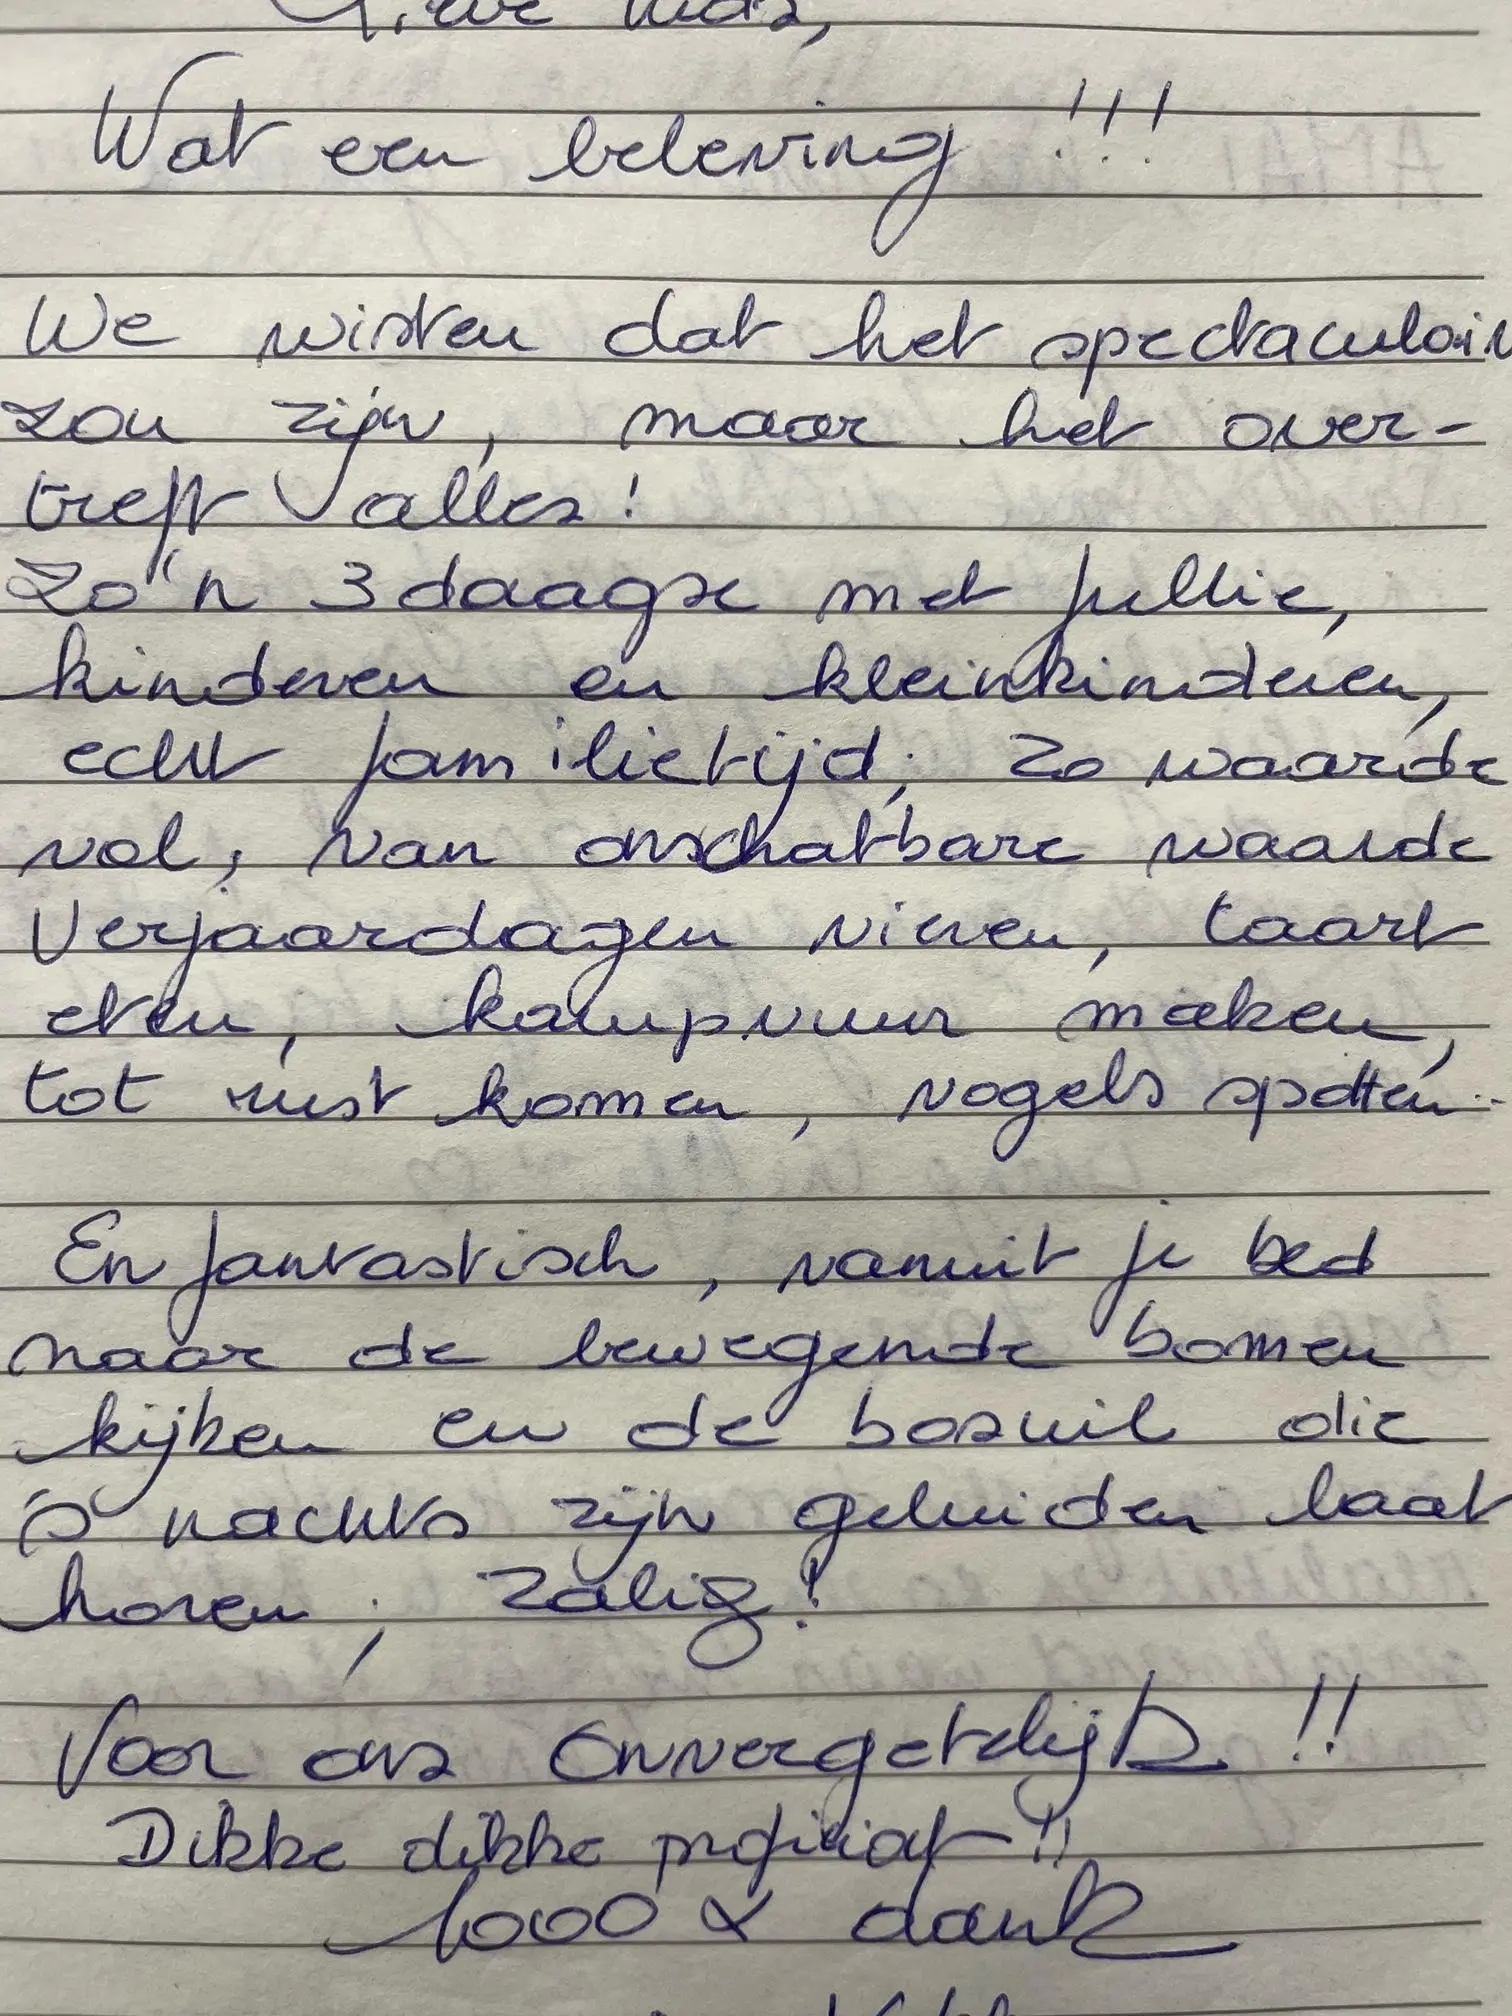 Wat een beleving !!!
We wisten dat het spectaculair
zou zijn, maar het over-
treft alles!
Zo'n 3daagse met jullie,
kinderen en kleinkinderen,
echt familietijd; zo waarde
vol, van onschatbare waarde
Verjaardagen vieren, taart
eten, kampvuur maken,
tot rust komen, vogels spotten..
En fantastisch, vanuit je bed
naar de bewegende bomen
kijken en de bosuil die
's nachts zijn geluiden laat
horen; Zalig!
Voor ons onvergetelijk !!
Dikke dikke proficiat !!
1000 x dank